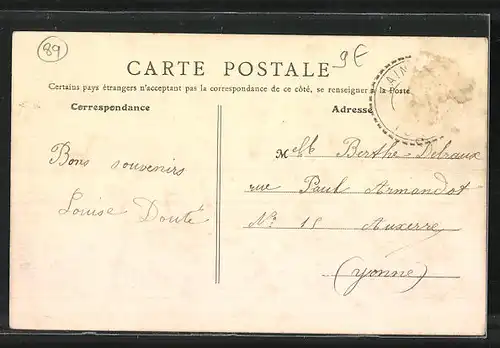 89
9E
CARTE POSTALE
Certains pays étrangers n'acceptant pas la correspondance de ce côté, se renseigner à la Poste
Correspondance
Adresse
Melle Berthe Delraux
rue Paul Armandot
No 15 Auxerre
(Yonne)
Bons souvenirs
Louise Douté